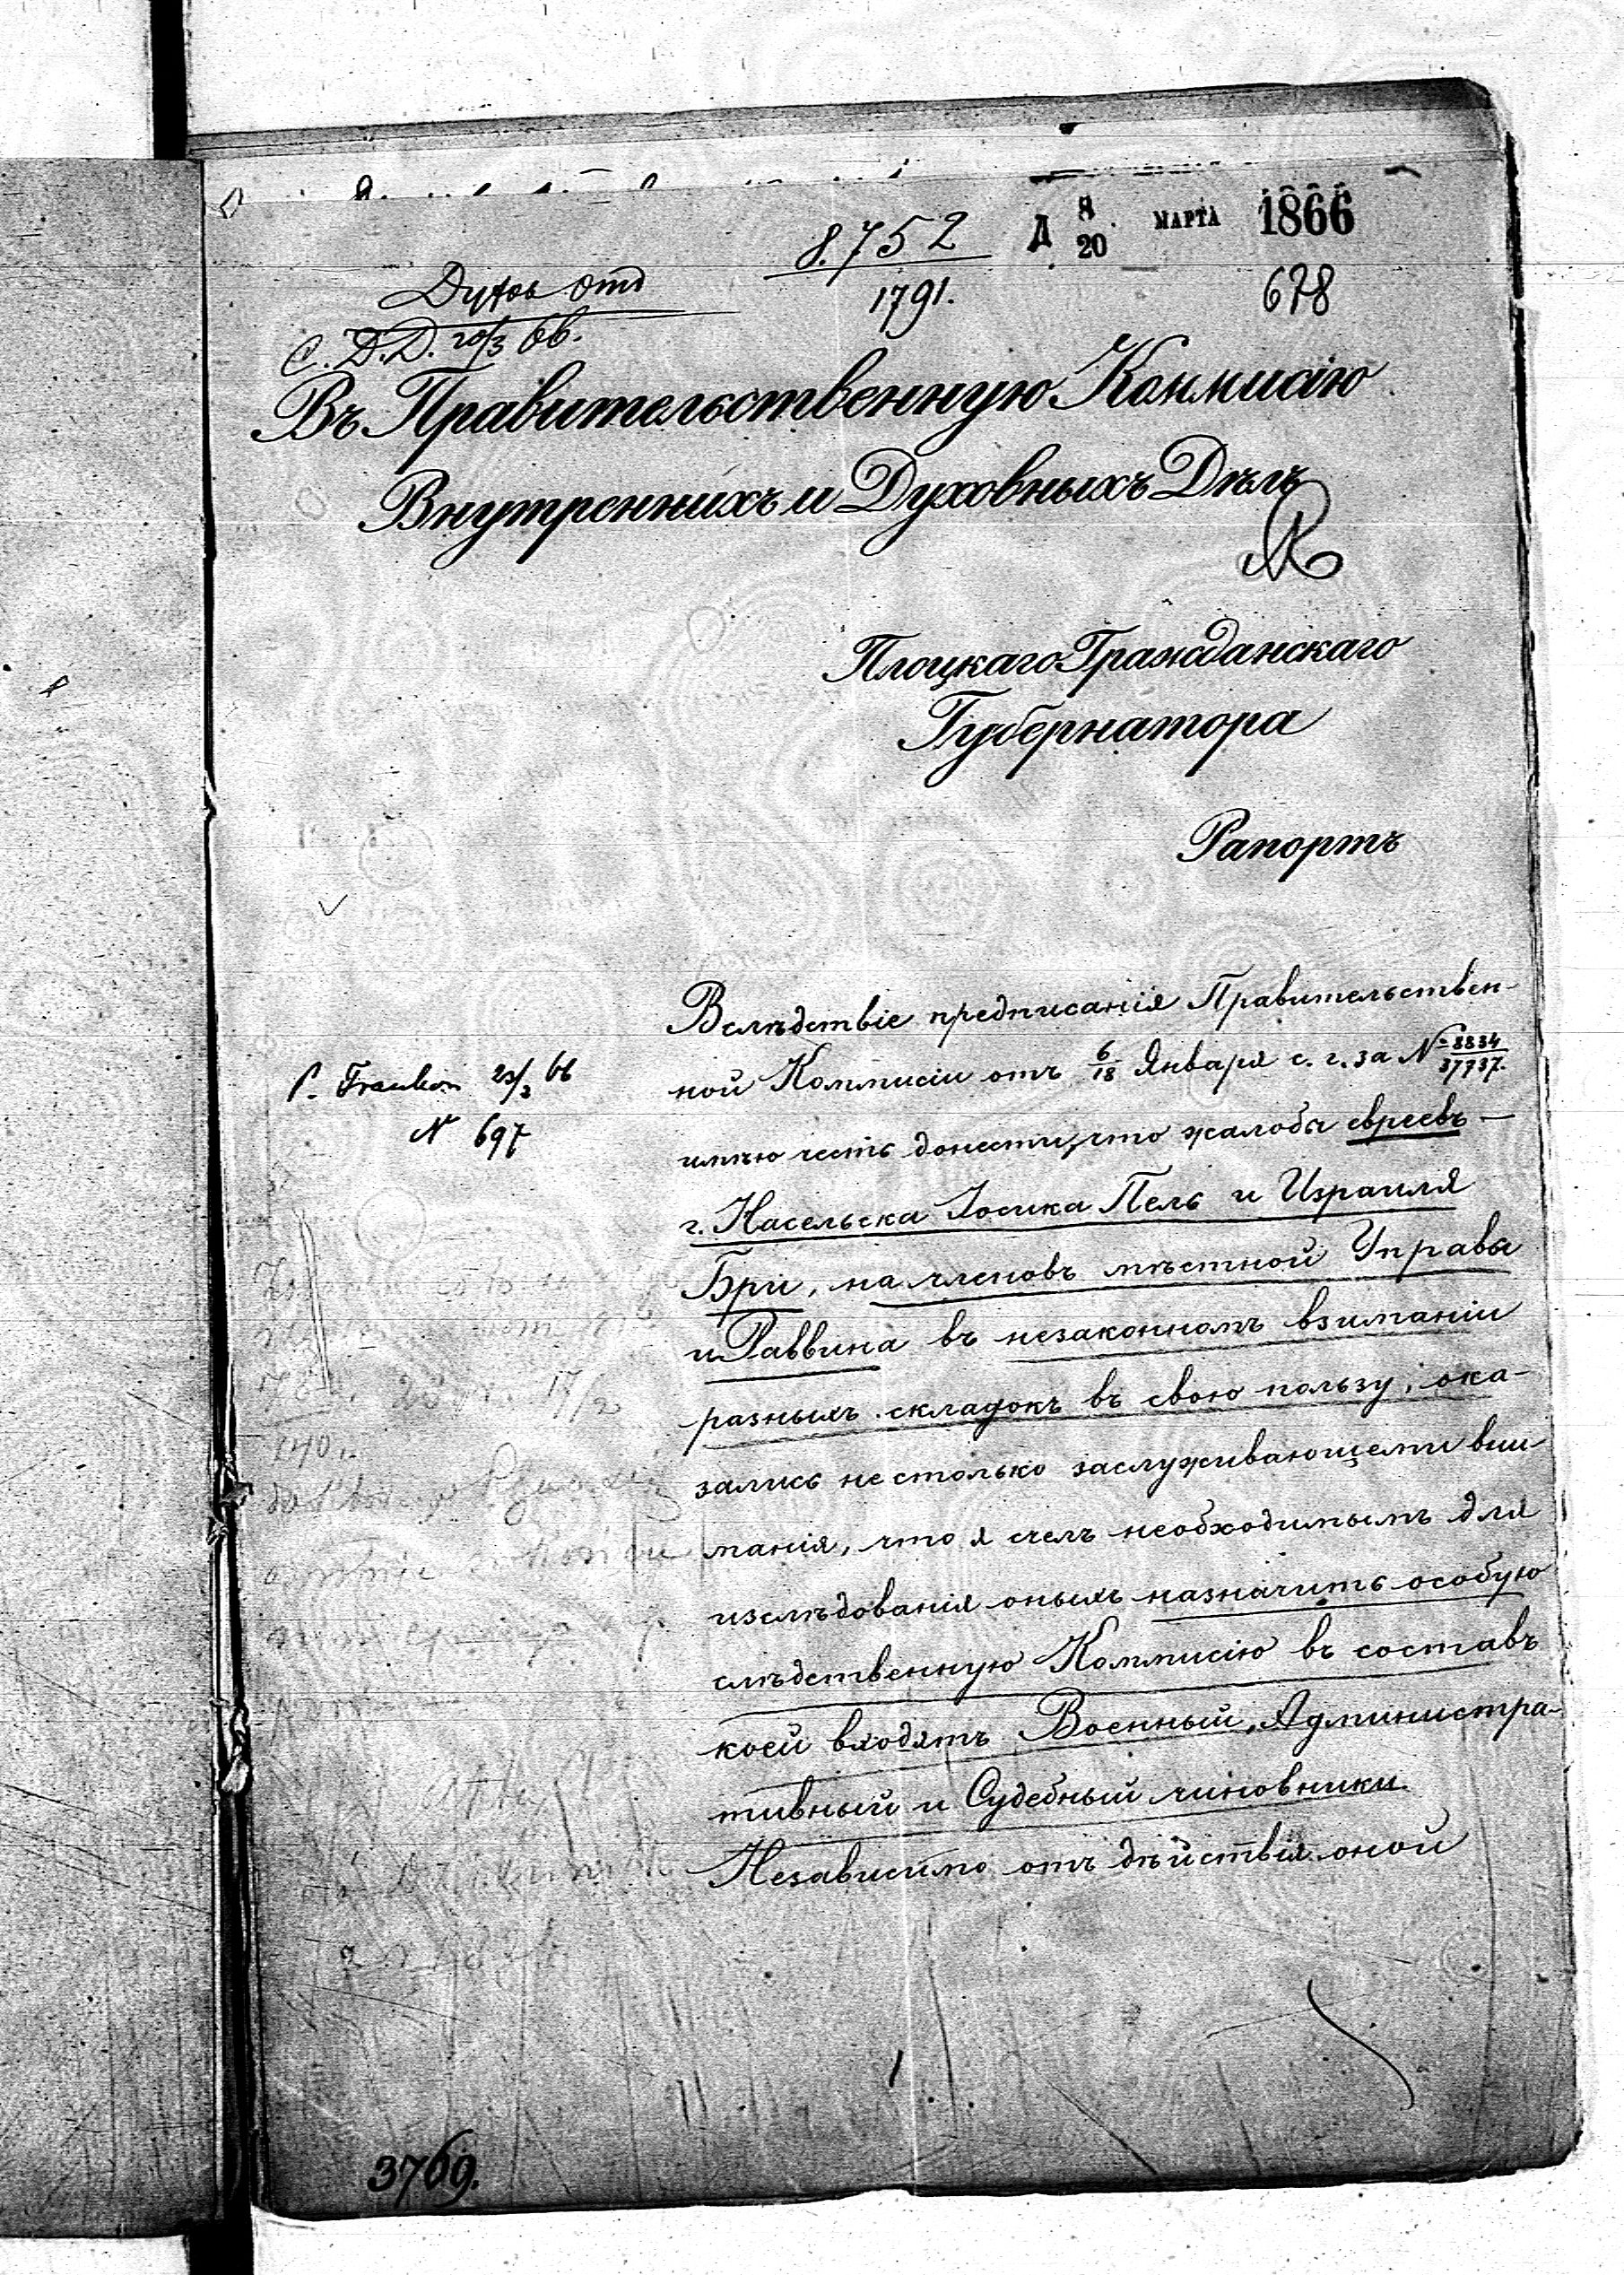 8.752
1791.
Д 8/20 МАРТА 1866
678
Духов отд
С. Д. Д. 20/3 66.
Въ Правительственную Коммисію
Внутреннихъ и Духовныхъ Дѣлъ
Плоцкаго Гражданскаго
Губернатора
Рапортъ
Вслѣдствіе предписанія Правительствен-
ной Коммисіи отъ 6/18 Января с. г. за № 8834/37737.
имѣю честь донести, что жалобы евреевъ —
г. Насельска Іосика Пель и Израиля
Бри, на членовъ мѣстной Управы
и Раввина въ незаконномъ взиманіи
разныхъ складокъ въ свою пользу, ока-
зались не столько заслуживающеми вни-
манія, что я счелъ необходимымъ для
изслѣдованія оныхъ назначить особую
слѣдственную Коммисію въ составъ
коей входятъ Военный, Администра-
тивный и Судебный чиновники.
Независимо отъ дѣйствія оной
23/3 66
N 697
3769.